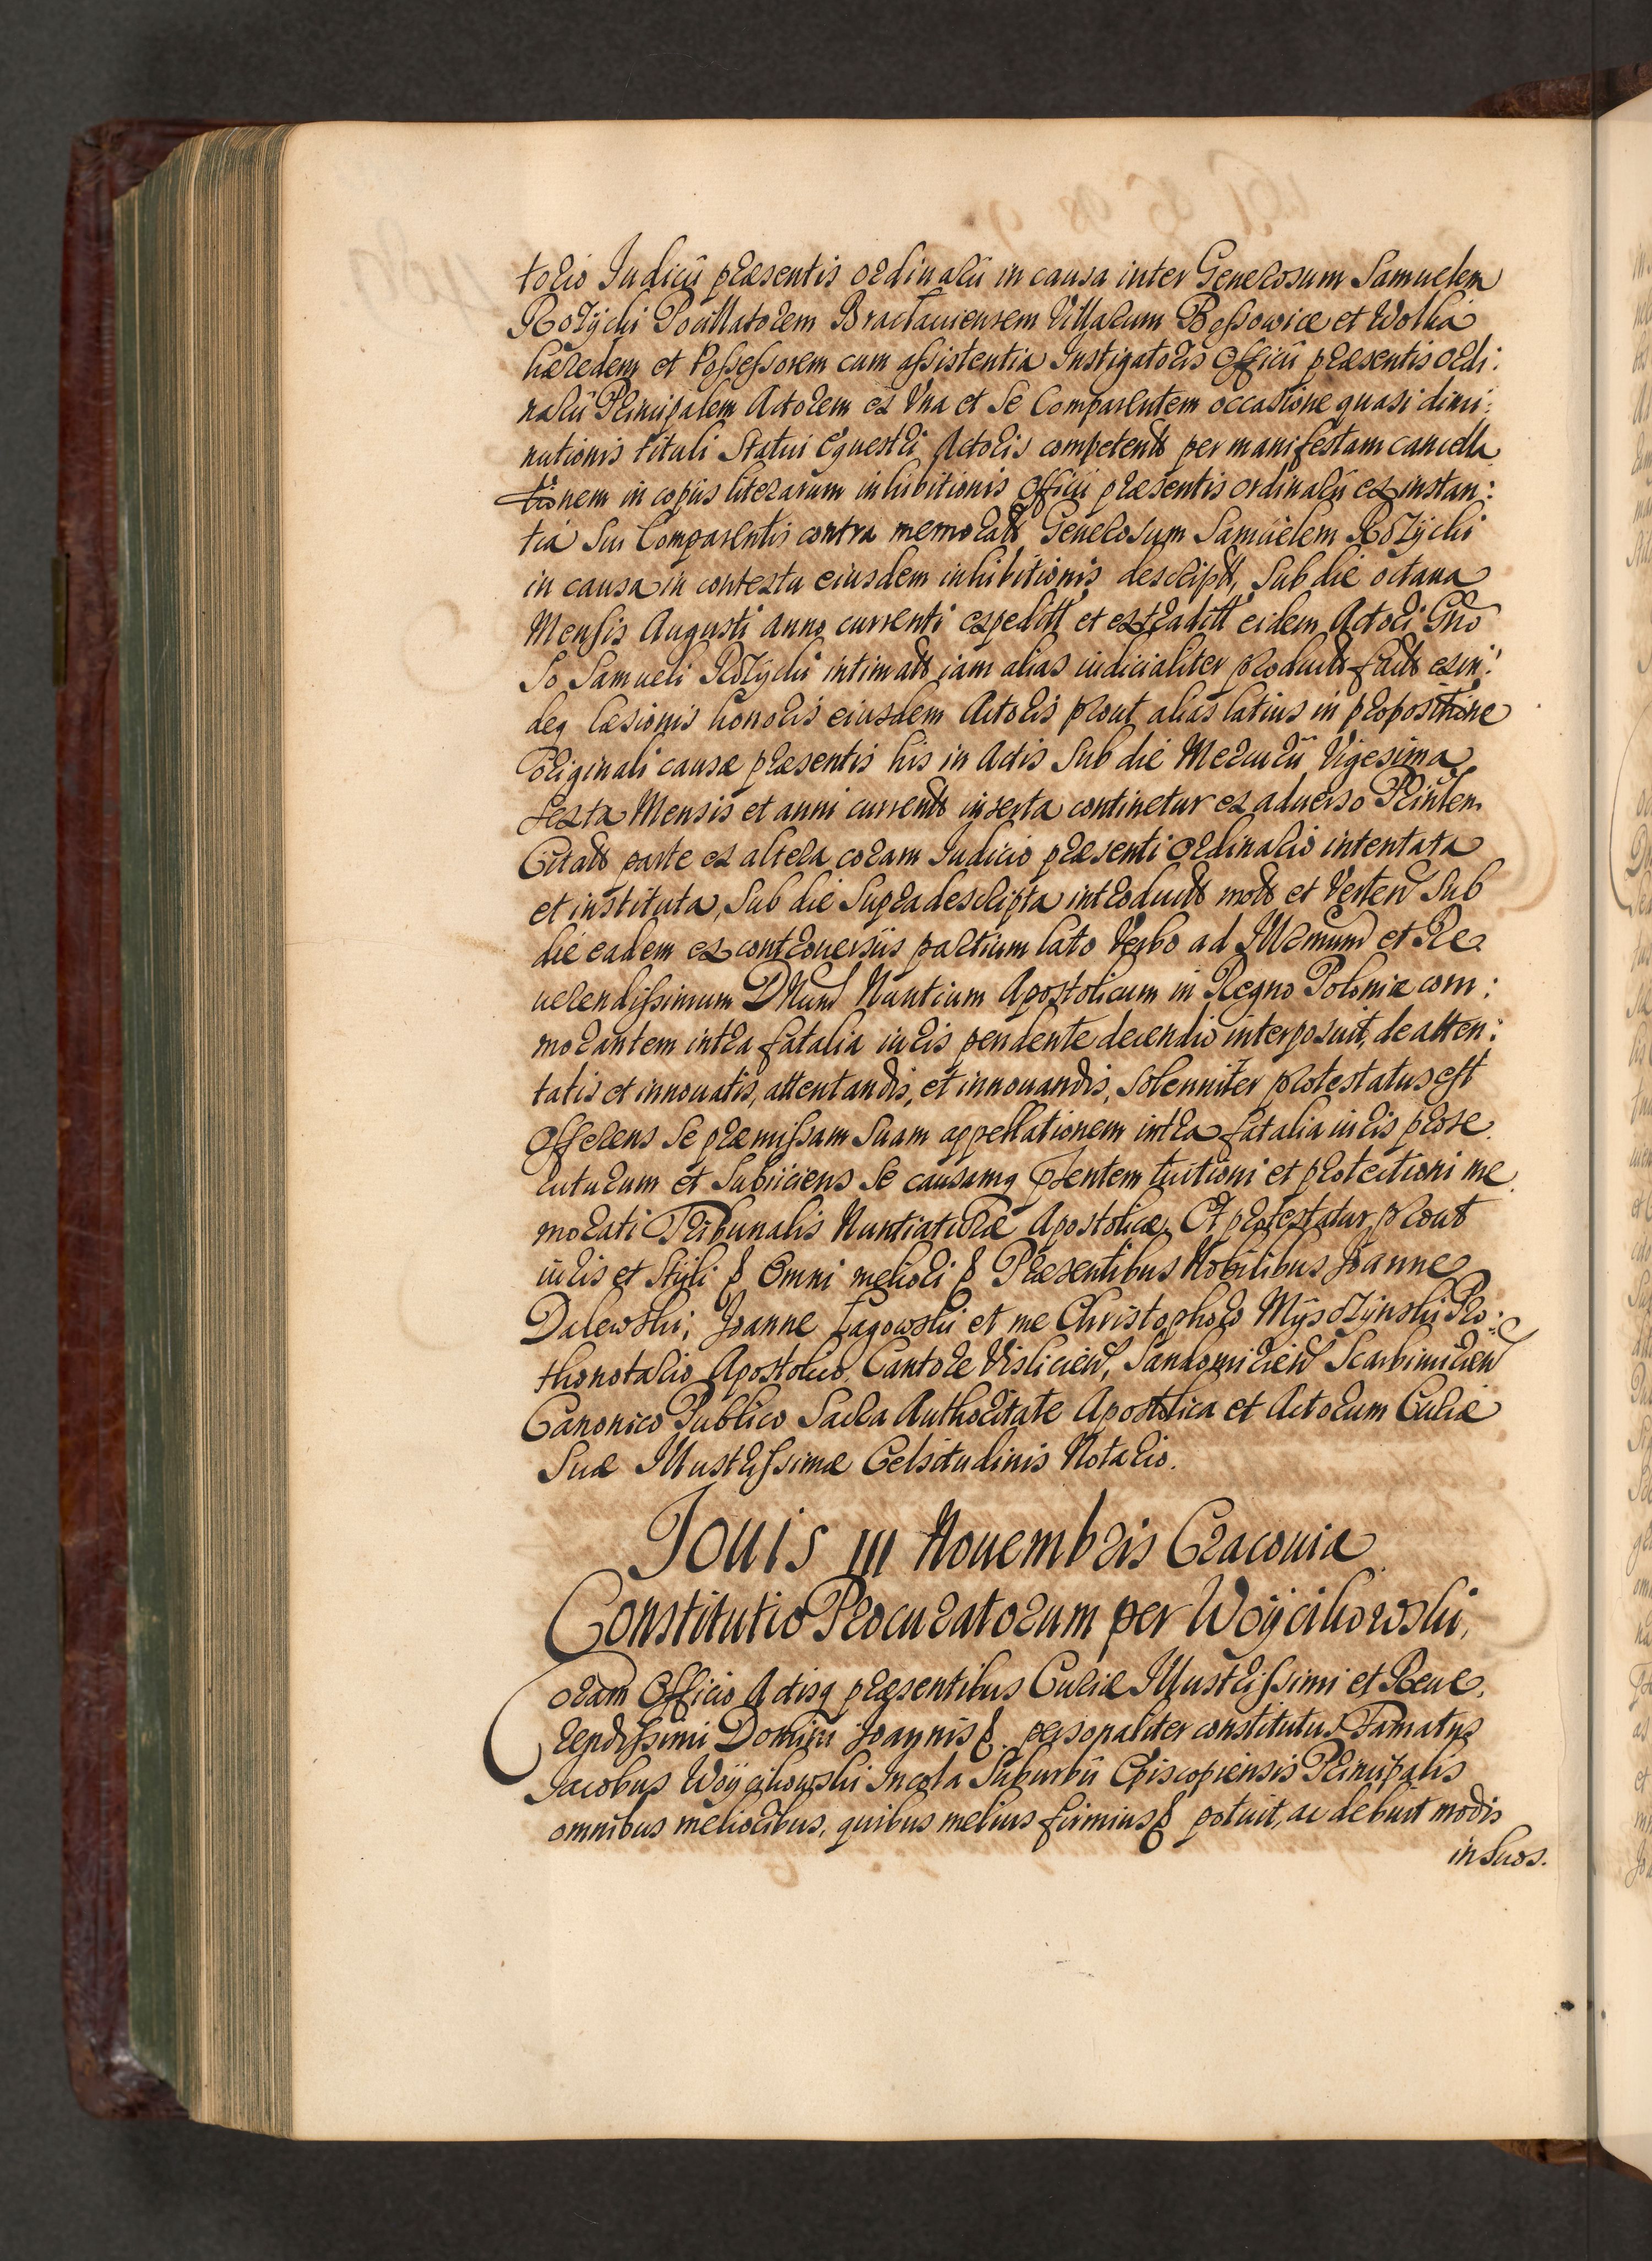 torio Judicii præsentis ordinarii in causa inter Generosum Samuelem
Rozÿcki Pocillatorem Bractauiensem Villarum Bessowice et Wolka
hæredem et Possessorem cum assistentia Instigatoris Officii præsentis ordi:
narii Principalem Actorem ex Vna et Se Comparentem occasione quasi dimi:
nutionis tituli Statui Equestri Actoris competents per manifestam cancella
tionem in copiis literarum inhibitionis Officii præsentis ordinarii ex instan:
tia Sui Comparentis contra memorats Generosum Samuelem Rozÿcki
in causa in contextu eiusdem inhibitionis descript, Sub die octaua
Mensis Augusti anno currenti expedit et extradit eidem Actori Gno
So Samueli Rozÿcki intimats iam alias iudicialiter products facts exin:
deq læsionis honoris eiusdem Actoris prout alias latius in propositione
originali causæ præsentis his in Actis Sub die Mercurii Vigesima
Sexta Mensis et anni currents inserta continetur ex aduerso Prinlem
Citats parte ex altera coram Judicio præsenti Ordinario intentata
et instituta, Sub die Supradescripta introducts mots et Verten Sub
die eadem ex controuersiis partium lato Verbo ad Illrmum et Re
uerendissimum Dnum Nuntium Apostolicum in Regno Poloniæ com:
morantem intra fatalia iuris pendente decendio interposuit, de atten:
tatis et innouatis, attentandis, et innouandis, Solenniter protestatus est
Offerens Se præmissam Suam appellationem intra fatalia iuris prose
cuturum et Subiiciens Se causamq Psentem tuitioni et protectioni me
morati Tribunalis Nuntiaturæ Apostolicæ, Et protestatur prout
iuris et Stÿli & Omni meliori & Præsentibus Nobilibus Joanne
Dalewski, Joanne Łagowski et me Christophoro Mÿsÿnski Pro:
thonotario Apostolico, Cantore Vislicien, Sandomirien Scarbimirien
Canonico Publico Sacra Authoritate Apostolica et Actorum Curiæ
Suæ Illustrissimæ Celsitudinis Notario.
Jouis III Nouembris Cracouiæ
Constitutio Procuratorum per Woÿcikowski,
Coram Officio Actisq præsentibus Curiæ Illustrissimi et Reue,
rendissimi Domini Joannis & personaliter constitutus Famatus
Jacobus Woÿcikowski Incola Suburbii Episcopiensis Principalis
omnibus melioribus, quibus melius firmius & potuit, ac debuit modis
in Suos.